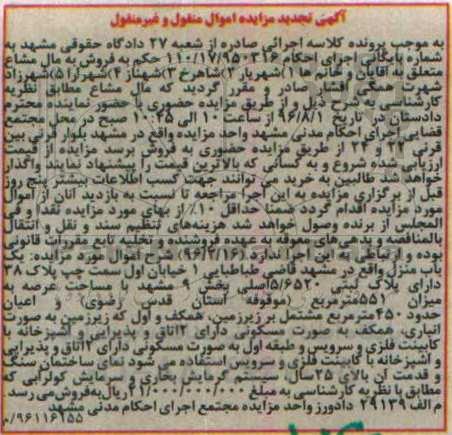 آگهی تجدید مزایده اموال منقول و غیرمنقول
به موجب پرونده کلاسه اجرائی صادره از شعبه ۲۷ دادگاه حقوقی مشهد به
شماره بایگانی اجرای احکام ۱۱۰/۱۷/۹۵۰۳۱۶ حکم به فروش به مال مشاع
متعلق به آقایان و خانم ها ۱)شهریار ۲)شاهرخ ۳)شهناز ۴)شهرآرا ۵)شهرزاد
شهرت همگی افشار صادر و مقرر گردید که مال مشاع مطابق نظریه
کارشناسی به شرح ذیل و از طریق مزایده حضوری با حضور نماینده محترم
دادستان در تاریخ ۹۶/۸/۱ از ساعت ۱۰ الی ۱۰:۴۵ صبح در محل مجتمع
قضایی اجرای احکام مدنی مشهد واحد مزایده واقع در مشهد بلوار قرنی بین
قرنی ۲۲ و ۲۴ از طریق مزایده حضوری به فروش برسد مزایده از قیمت
ارزیابی شده شروع و به کسانی که بالاترین قیمت را پیشنهاد نمایند واگذار
خواهد شد طالبین به خرید می توانند جهت کسب اطلاعات بیشتر پنج روز
قبل از برگزاری مزایده به این اجرا مراجعه تا نسبت به بازدید آنان از اموال
مورد مزایده اقدام گردد ضمنا حداقل ۱۰٪ از بهای مورد مزایده نقدا و فی
المجلس از برنده وصول خواهد شد هزینه‌های تنظیم سند و نقل و انتقال
بالمناقصه و بدهی‌های معوقه به عهده فروشنده و تخلیه تابع مقررات قانونی
بوده و ارتباطی به این اجرا ندارد (۹۶/۲/۱۶) شرح اموال مورد مزایده: یک
باب منزل واقع در مشهد قاضی طباطبایی ۱ خیابان اول سمت چپ پلاک ۳۸
دارای پلاک ثبتی ۵/۶۵۲۰اصلی بخش ۹ مشهد با مساحت عرصه به
میزان ۵۵۱مترمربع (موقوفه آستان قدس رضوی) اعیان
حدود ۴۵۰مترمربع مشتمل بر زیرزمین، همکف و اول که زیرزمین به صورت
انباری، همکف به صورت مسکونی دارای ۲اتاق و پذیرایی و آشپزخانه با
کابینت فلزی و سرویس و طبقه اول به صورت مسکونی دارای ۲اتاق و پذیرایی
و آشپزخانه با کابینت فلزی و سرویس استفاده می شود نمای ساختمان سنگ
و قدمت آن بالای ۲۵سال، سیستم گرمایش بخاری و سرمایش کولرآبی که
مطابق با نظر به کارشناسی به مبلغ ۲۱/۰۰۰/۰۰۰/۰۰۰ ریال به‌فروش می رسد.
م الف ۲۹۱۳۹ دادورز واحد مزایده مجتمع اجرای احکام مدنی مشهد
۹۶۱۱۶۲۵۵/م